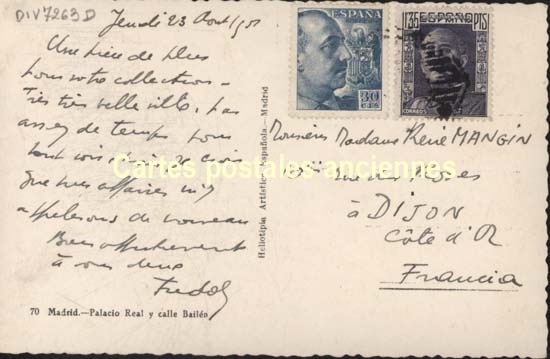 DIV7263D
Jeudi 23 Août
Une pièce de plus
pour votre collection –
Très très belle ville, pas
assez de temps pour
tout voir
que mes affaires m'y
appelerons de nouveau
Bien affectueusement
à vous deux
70 Madrid.—Palacio Real y calle Bailén
Heliotipia Artística Española.—Madrid
ESPAÑA
30
CTS
1'35 PTS
ESPAÑA
CORREOS
Monsieur Madame René MANGIN
rue des
à DIJON
Côte d'Or
Francia
Cartes postales anciennes